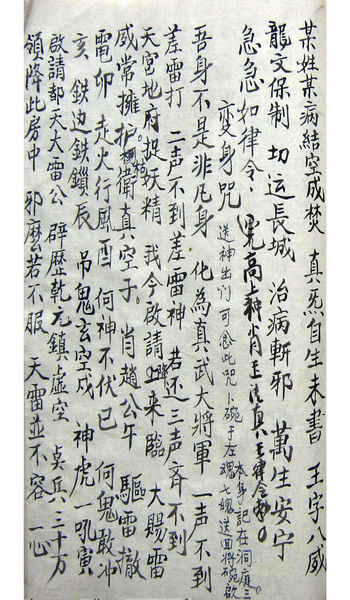 某姓某病結空成梵 真炁自生未書 王字八威
龍文保制 切运長城 治病斬邪 萬生安宁
急急如律令
变身咒 送神出们可念此咒
吾身不是非凡身 化為真武大將軍 一声不到
差雷打 二声不到差雷神 若还三声齐不到
天宮地府捉妖精 我今啟請來臨 大賜雷
威常擁护衛真空子 肖趙公午 驅雷撤
電卯 走火行風酉 何神不伏巳 何鬼敢冲
亥 鉄边鉄鎖辰 吊鬼玄空戌 神虎一吼寅
啟請都天大雷公 霹歷乾元鎮虛空 兵三十万
領降此房中 邪麽若不服 天雷並不容 一心